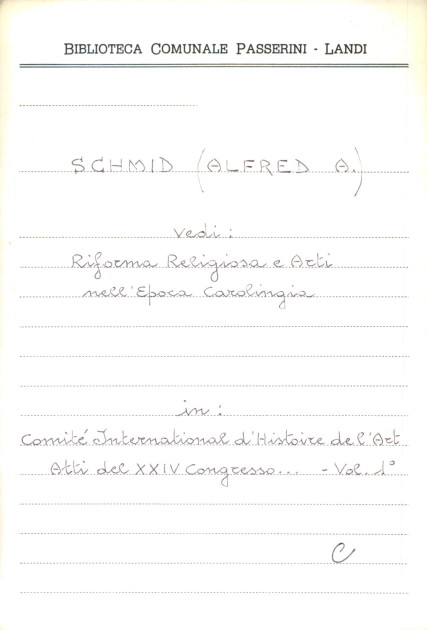 BIBLIOTECA COMUNALE PASSERINI - LANDI
SCHMID (ALFRED A.)
vedi :
Riforma Religiosa e Arti
nell'Epoca Carolingia
in :
Comité International d'Histoire de l'Art
Atti del XXIV Congresso... - Vol. 1°
C